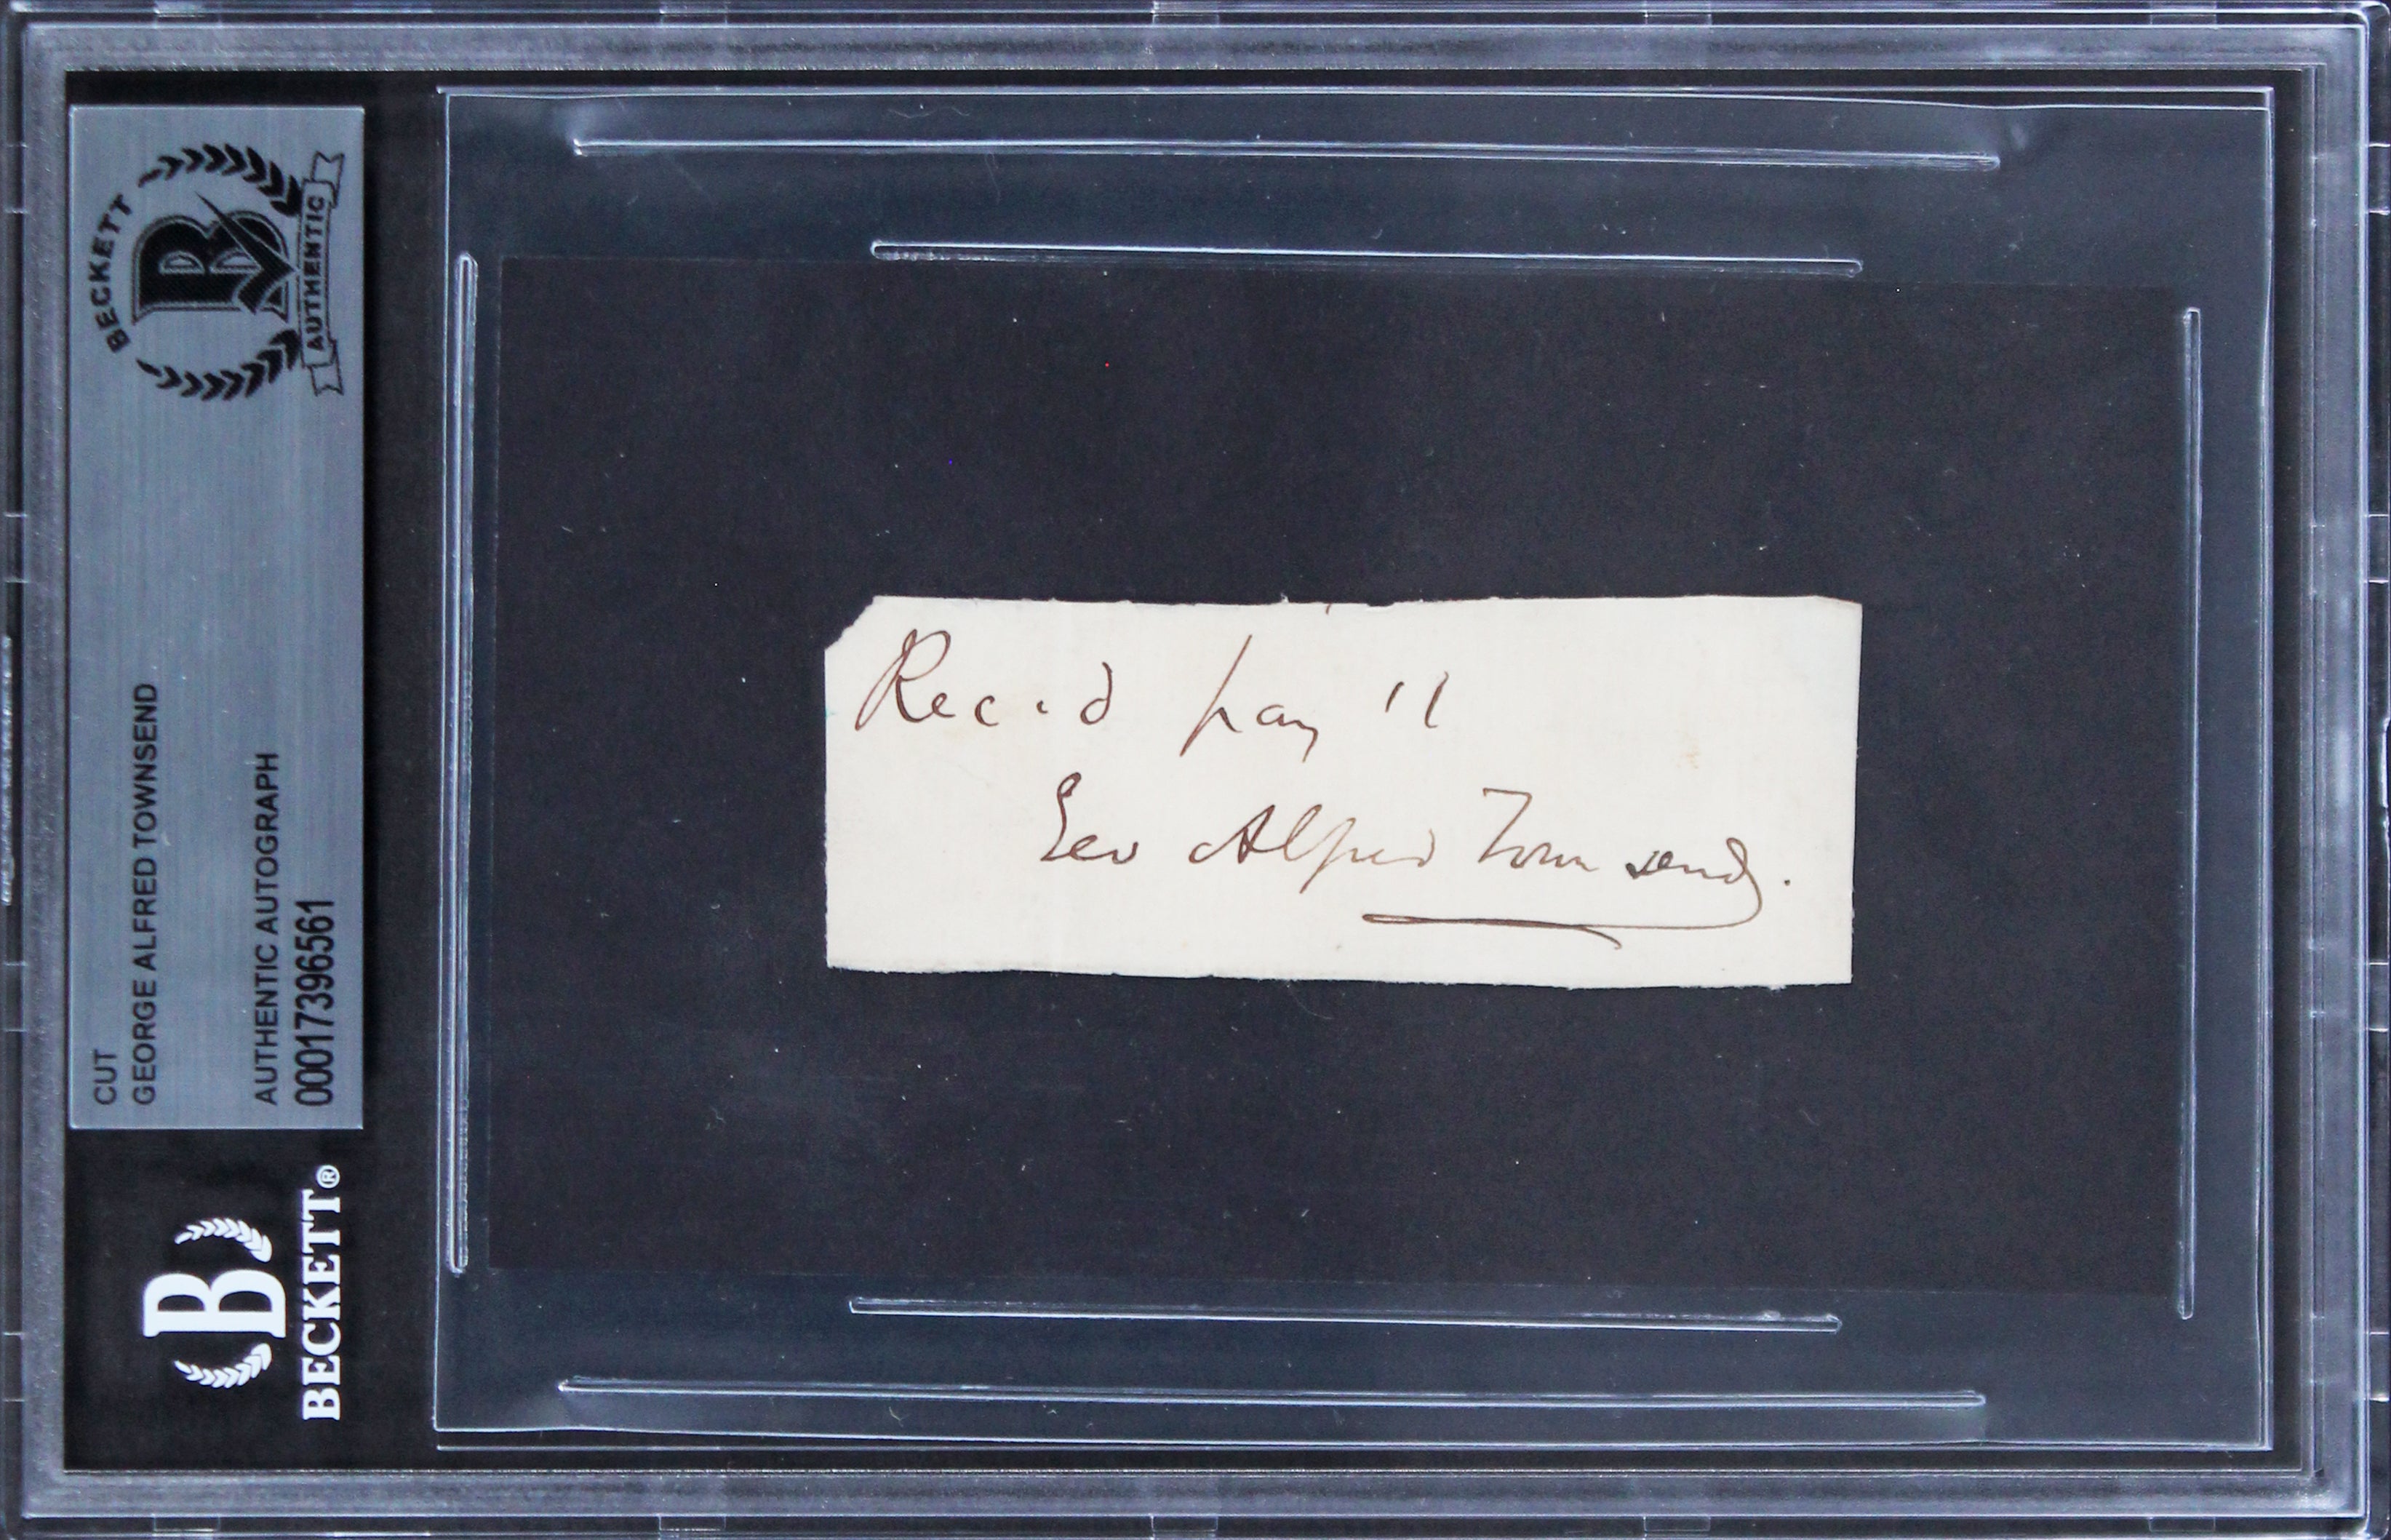 BECKETT
AUTHENTIC
CUT
GEORGE ALFRED TOWNSEND
AUTHENTIC AUTOGRAPH
00017396561
BECKETT®
Rec'd pay
Geo Alfred Townsend.